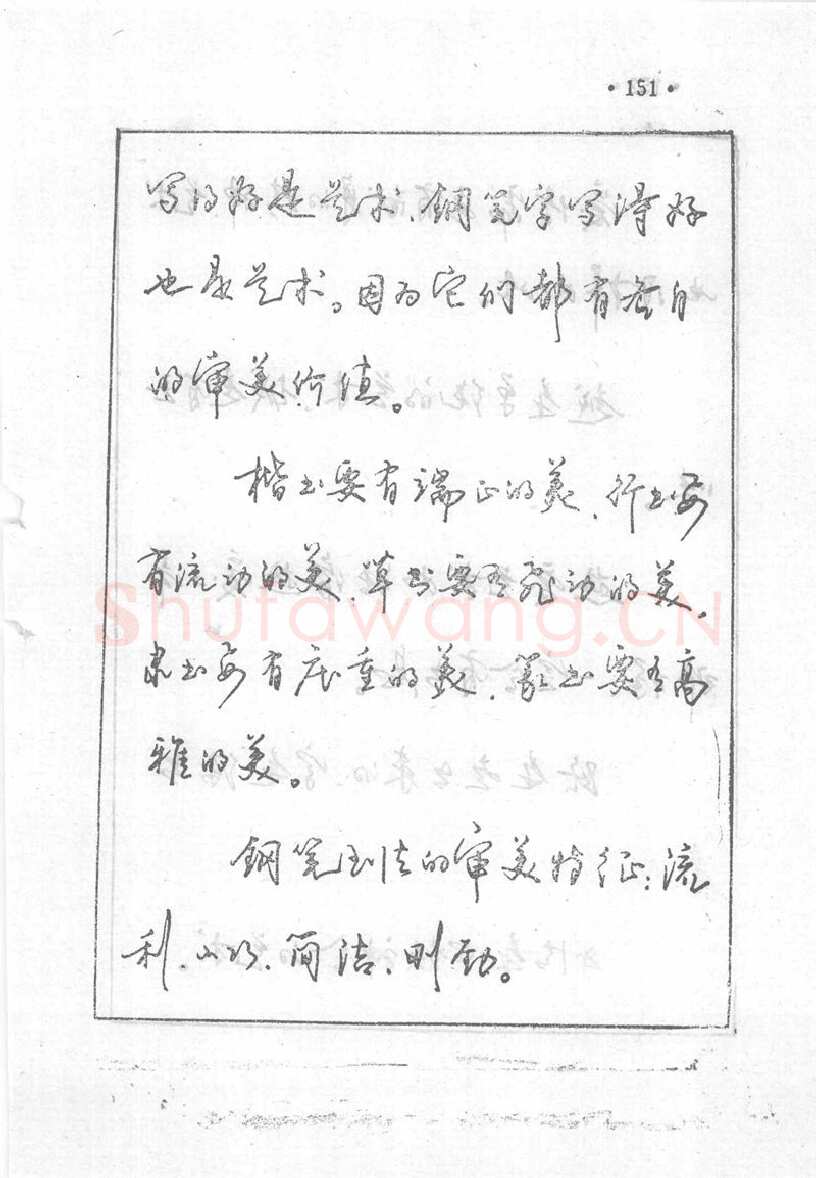 ·151·
写的好是艺术、钢笔字写得好
也是艺术。因为它们都有各自
的审美价值。
楷书要有端正的美、行书要
有流动的美、草书要有飞动的美、
隶书要有庄重的美、篆书要有高
雅的美。
钢笔书法的审美特征：流
利、小巧、简洁、刚劲。
Shufawang.CN